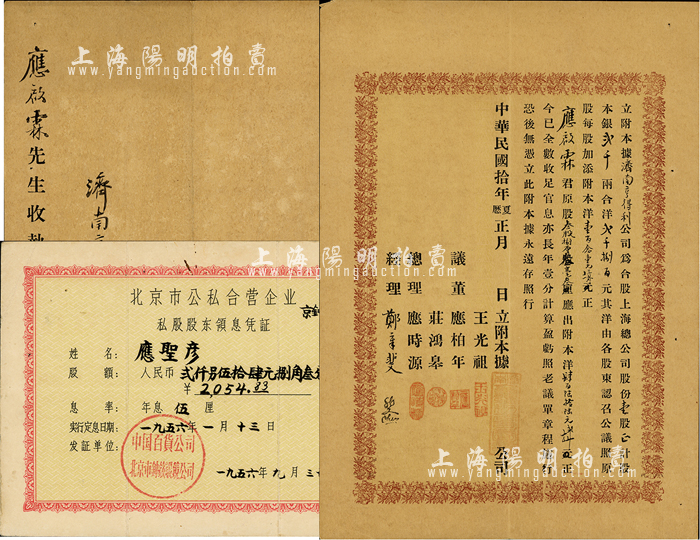 上海陽明拍賣
www.yangmingauction.com
應啟霖先生收執
濟南
北京市公私合营企业
私股股东領息凭証
姓名：應聖彦
股額：人民币 弍仟另伍拾肆元捌角叁分
￥2,054.83
息率：年息 伍 厘
实行定息日期：一九五六年 一 月 十三 日
发証单位：
中国百貨公司
一九五六年 九 月
上海陽明拍賣
www.yangmingauction.com
立附本據濟南亨得利公司爲合股上海總公司股份 正計股
本銀弍千 兩合洋弍千捌百元其洋由各股東認召公議照原
股每股加添附本洋 正
應啟霖 君原股 應出附本洋 正
今已全數收足官息亦長年壹分計算盈虧照老議單章程
恐後無憑立此附本據永遠存照行
中華民國拾年夏歷正月 日立附本據 公司
王光祖
議董 應柏年
莊鴻皋
總理 應時源
經理 鄭章斐
上海陽明拍賣
www.yangmingauction.com